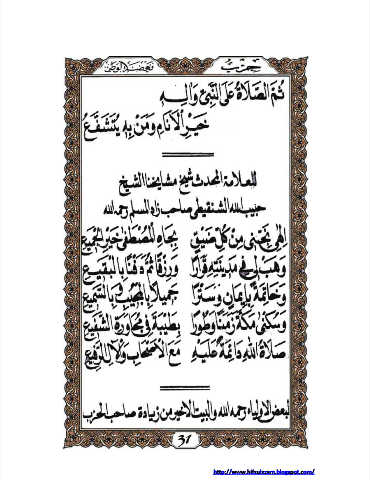 حزب
ثُمَّ الصَّلَاةُ عَلَى النَّبِيِّ وَآلِهِ
خَيْرِ الْأَنَامِ وَمَنْ بِهِ يُتَشَفَّعُ
للعلامة المحدث شيخ مشايخنا الشيخ
حبيب الله الشنقيطي صاحب زاد المسلم رحمه الله
إلهي نجني من كل ضيق بجاه المصطفى خير الجميع
وهب لي في مدينته قرارا ورزقا ثم دفنا بالبقيع
وخاتمة بإيمان وسترا جميلا يا مجيب يا سميع
وسكنى مكة زمنا وطورا بطيبة في مجاورة الشفيع
صلاة الله دائمة عليه مع الأصحاب والآل الرفيع
لبعض الأولياء رحمه الله والبيت الأخير من زيادة صاحب الحزب
31
http://www.hithuizam.blogspot.com/